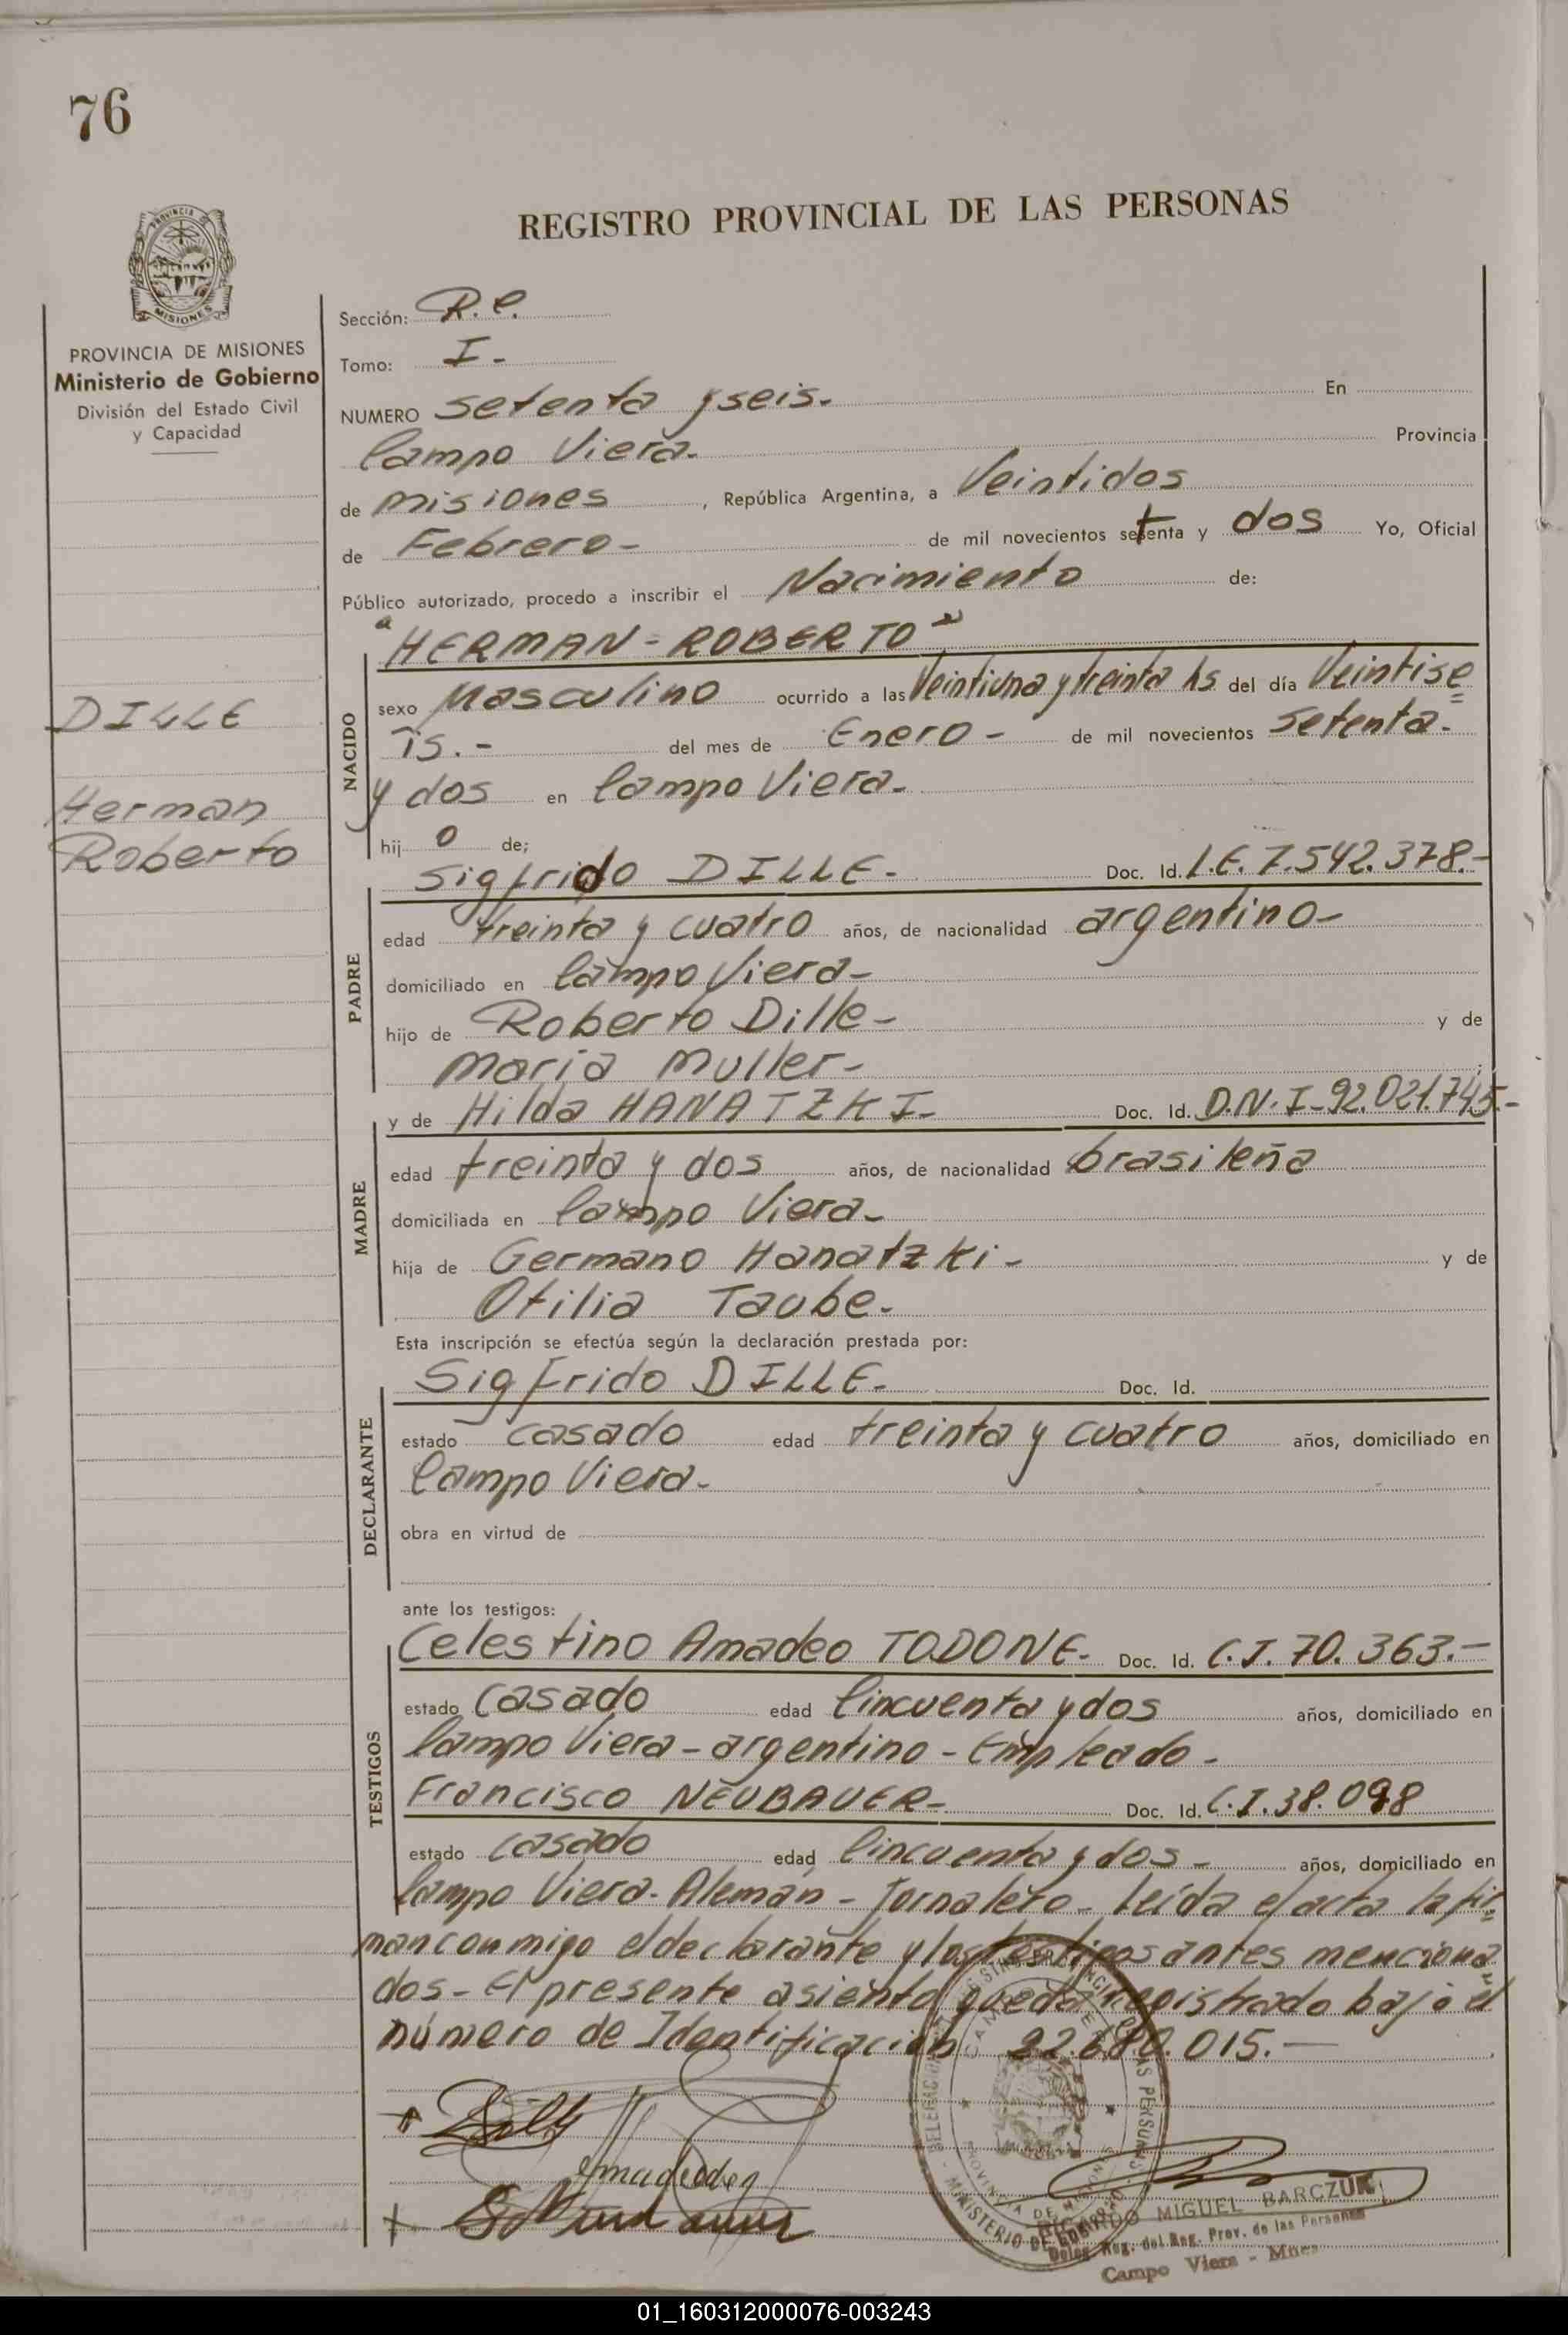 76
REGISTRO PROVINCIAL DE LAS PERSONAS
PROVINCIA
MISIONES
PROVINCIA DE MISIONES
Ministerio de Gobierno
División del Estado Civil
y Capacidad
DILLE
Herman
Roberto
Sección: R.C.
Tomo: I-
NUMERO setenta y seis. En
Campo Viera. Provincia
de Misiones , República Argentina, a Veintidos
de Febrero- de mil novecientos setenta y dos Yo, Oficial
Público autorizado, procedo a inscribir el Nacimiento de:
"HERMAN-ROBERTO"
NACIDO
sexo Masculino ocurrido a las Veintiuna y treinta hs del día Veintise=
is.- del mes de Enero- de mil novecientos setenta-
y dos en Campo Viera-
hij o de;
PADRE
Sigfrido DILLE- Doc. Id. L.E. 7.542.378.-
edad treinta y cuatro años, de nacionalidad argentino-
domiciliado en Campo Viera-
hijo de Roberto Dille- y de
Maria Muller-
MADRE
y de Hilda HANATZKI- Doc. Id. D.N.I-92.021.745.-
edad treinta y dos años, de nacionalidad brasileña
domiciliada en Campo Viera-
hija de Germano Hanatzki- y de
Otilia Taube-
Esta inscripción se efectúa según la declaración prestada por:
DECLARANTE
Sigfrido DILLE- Doc. Id.
estado casado edad treinta y cuatro años, domiciliado en
Campo Viera-
obra en virtud de
ante los testigos:
TESTIGOS
Celestino Amadeo TODONE- Doc. Id. C.I. 70.363.-
estado casado edad Cincuenta y dos años, domiciliado en
Campo Viera-argentino-Empleado-
Francisco NEUBAUER- Doc. Id. C.I.38.098
estado casado edad Cincuenta y dos- años, domiciliado en
Campo Viera-Alemán-Jornalero-Leída el acta la fir=
man conmigo el declarante y los testigos antes menciona=
dos-El presente asiento queda registrado bajo el
número de Identificación 22.680.015.-
MIGUEL BARCZUK
Deleg. Reg. del Reg. Prov. de las Personas
Campo Viera - Mnes
01_160312000076-003243